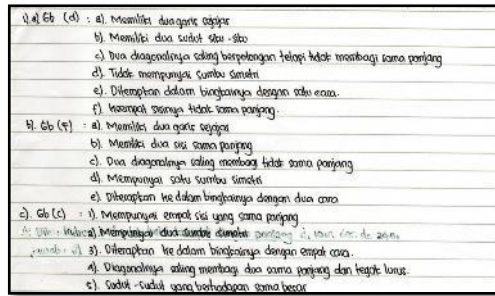 1). a) Gb (d) : a). Memiliki dua garis sejajar
b). Memiliki dua sudut siku-siku
c). Dua diagonalnya saling berpotongan tetapi tidak membagi sama panjang
d). Tidak mempunyai sumbu simetri
e). Diterapkan dalam bingkainya dengan satu cara.
f). Keempat sisinya tidak sama panjang.
b). Gb (f) : a). Memiliki dua garis sejajar
b). Memiliki dua sisi sama panjang
c). Dua diagonalnya saling membagi tidak sama panjang
d). Mempunyai satu sumbu simetri
e). Diterapkan ke dalam bingkainya dengan dua cara
c). Gb (c) : 1). Mempunyai empat sisi yang sama panjang
2). Mempunyai dua sumbu simetri
3). Diterapkan ke dalam bingkainya dengan empat cara.
4). Diagonalnya saling membagi dua sama panjang dan tegak lurus.
5). Sudut-sudut yang berhadapan sama besar